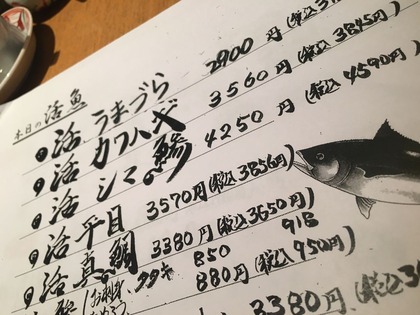 本日の活魚
活 うまづら 2900円(税込31
活 カワハギ 3560円(税込3845円)
活 シマ鯵 4250円(税込4590円)
活 平目 3570円(税込3856円)
活 真鯛 3380円(税込3650円)
850 918
880円(税込950円)
3380円(税込3